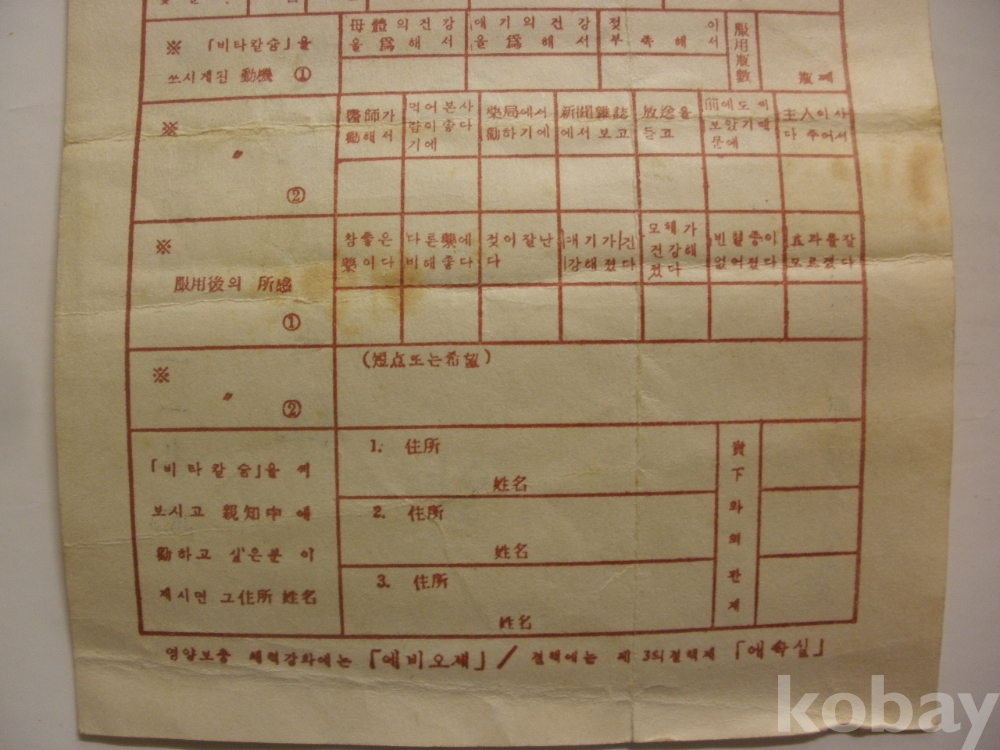 ※ 「비타칼슘」을
쓰시게된 動機 ①
母體의 건강
을 爲해서
애기의 건강
을 爲해서
젖이
부족해서
服用瓶數
瓶째
※
〃
②
醫師가
勸해서
먹어본사
람이좋다
기에
藥局에서
勸하기에
新聞雜誌
에서 보고
放送을
듣고
前에도 써
보았기때
문에
主人이사
다 주어서
※
服用後의 所感
①
참좋은
藥이다
다른藥에
비해좋다
젖이잘난
다
애기가건
강해졌다
모체가
건강해
졌다
빈혈증이
없어졌다
효과를잘
모르겠다
※
〃
②
(短点또는希望)
「비타칼슘」을 써
보시고 親知中에
勸하고 싶은분이
계시면 그住所 姓名
1. 住所
姓名
2. 住所
姓名
3. 住所
姓名
貴下와의관계
영양보충 체력강화에는 「에비오제」 / 결핵에는 제3의결핵제 「애속실」
kobay